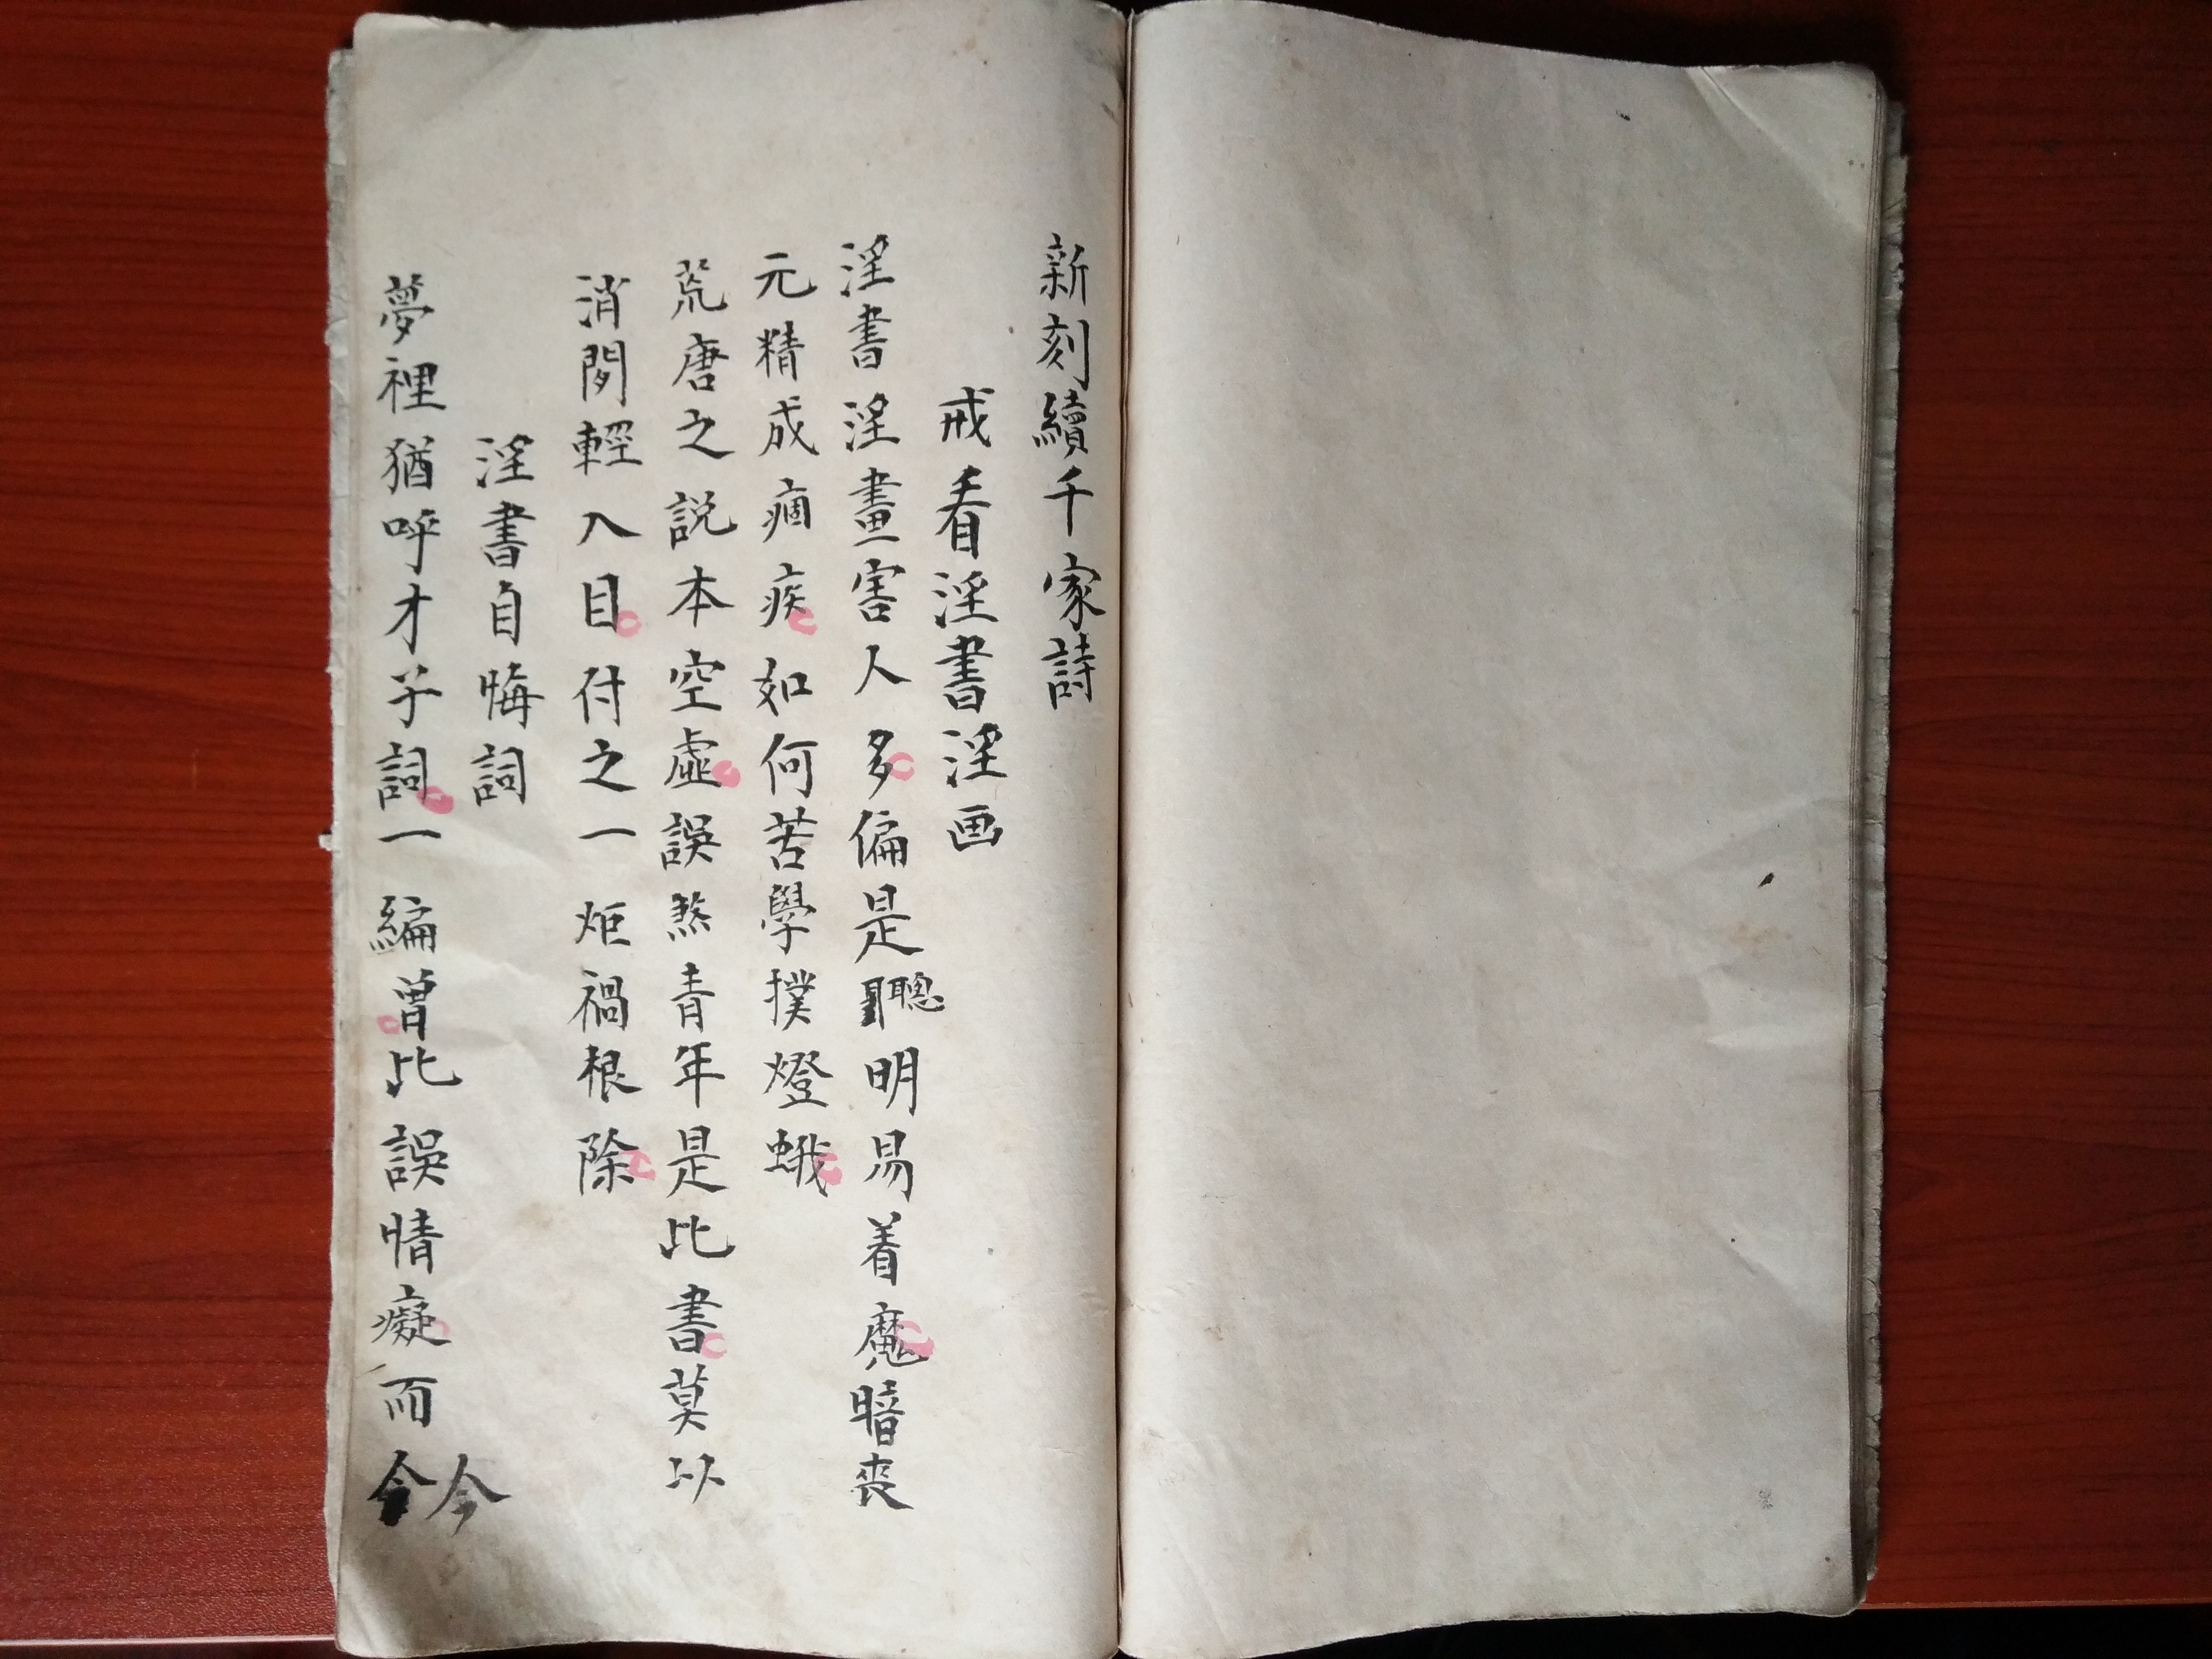 新刻續千家詩
戒看淫書淫画
淫書淫畫害人多偏是聰明易着魔暗丧
元精成痼疾如何苦學撲燈蛾
荒唐之説本空虛誤煞青年是比書莫以
消閑輕入目付之一炬禍根除
淫書自悔詞
夢裡猶呼才子詞一編曾比誤情癡而今